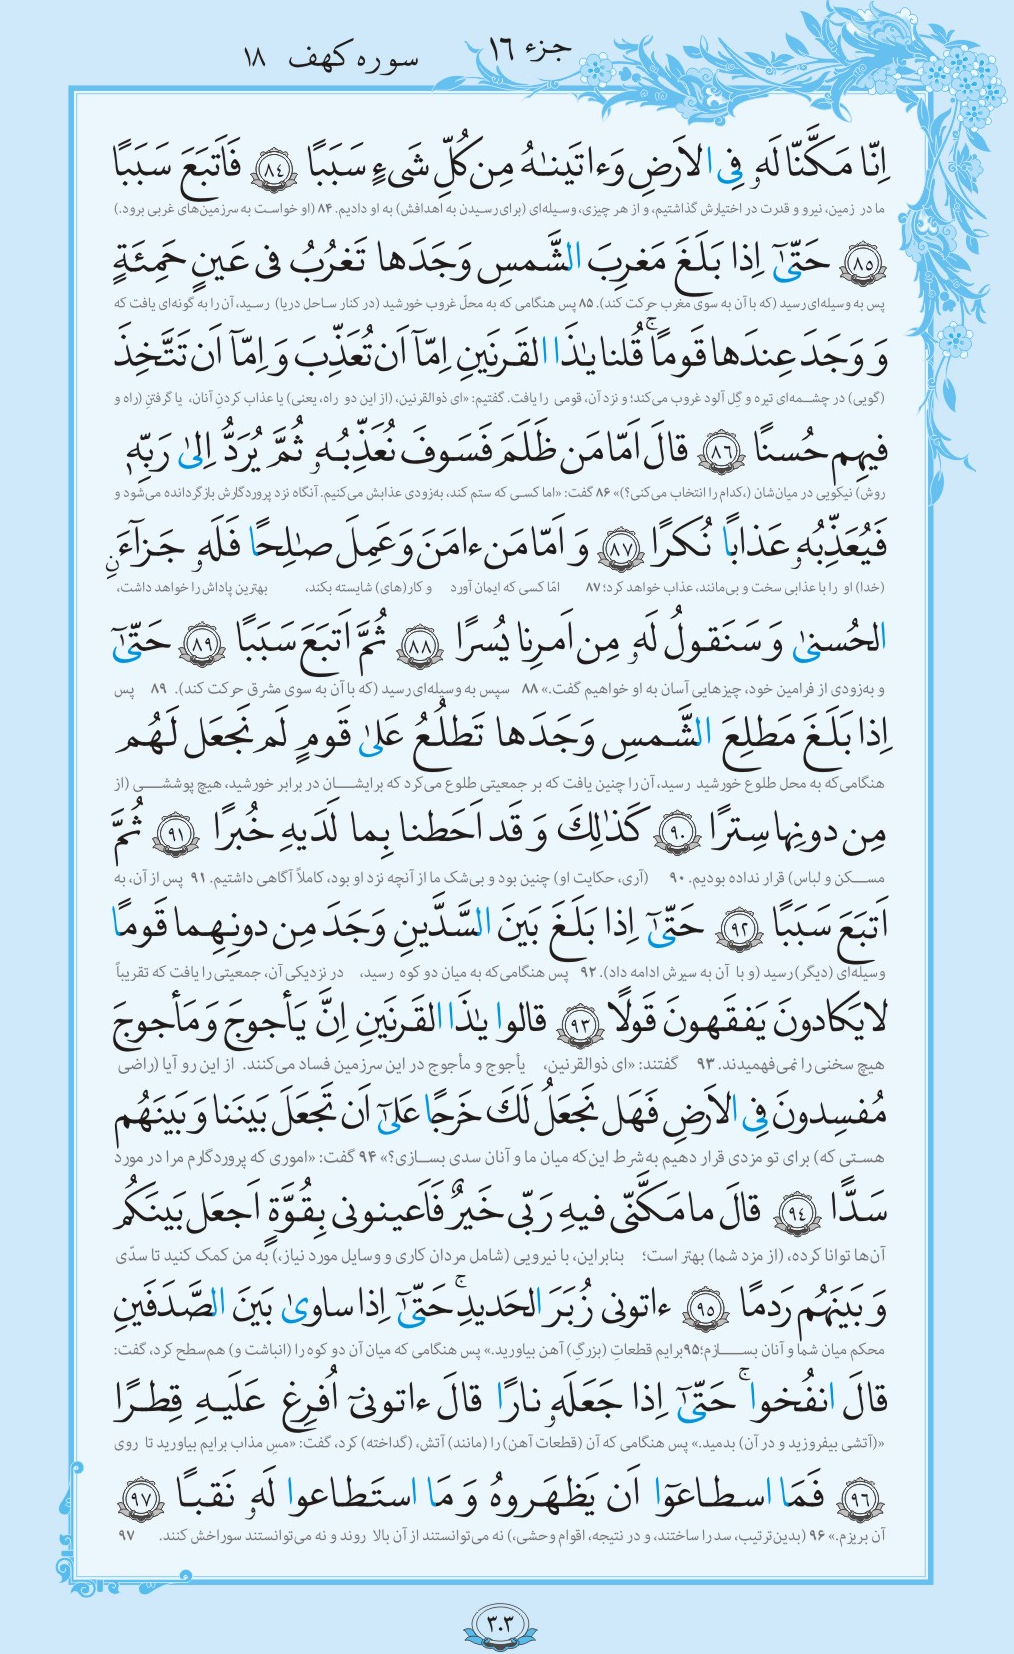 جزء ۱۶
سوره کهف ۱۸
اِنّا مَكَّنّا لَهٗ فِی الاَرضِ وَءاتَینـٰهُ مِن كُلِّ شَیءٍ سَبَبًا ﴿٨٤﴾ فَاَتبَعَ سَبَبًا
ما در زمین، نیرو و قدرت در اختیارش گذاشتیم، و از هر چیزی، وسیله‌ای (برای رسیدن به اهدافش) به او دادیم. ۸۴ (او خواست به سرزمین‌های غربی برود.)
﴿٨٥﴾ حَتّیٰٓ اِذا بَلَغَ مَغرِبَ الشَّمسِ وَجَدَها تَغرُبُ فی عَینٍ حَمِئَةٍ
پس به وسیله‌ای رسید (که با آن به سوی مغرب حرکت کند). ۸۵ پس هنگامی که به محلّ غروب خورشید (در کنار ساحل دریا) رسید، آن را به گونه‌ای یافت که
وَ وَجَدَ عِندَها قَومًاۚ قُلنا یـٰذَا القَرنَینِ اِمّآ اَن تُعَذِّبَ وَ اِمّآ اَن تَتَّخِذَ
(گویی) در چشـمه‌ای تیره و گِل آلود غروب می‌کند؛ و نزد آن، قومی را یافت. گفتیم: «ای ذوالقرنین، (از این دو راه، یعنی) یا عذاب کردنِ آنان، یا گرفتنِ (راه و
فیهِم حُسنًا ﴿٨٦﴾ قالَ اَمّا مَن ظَلَمَ فَسَوفَ نُعَذِّبُـهٗ ثُمَّ یُرَدُّ اِلیٰ رَبِّهٖ
روش) نیکویی در میان‌شان (،کدام را انتخاب می‌کنی؟)» ۸۶ گفت: «اما کسـی که ستم کند، به‌زودی عذابش می‌کنیم. آنگاه نزد پروردگارش بازگردانده می‌شود و
فَیُعَذِّبُهٗ عَذابًا نُكرًا ﴿٨٧﴾ وَ اَمّا مَن ءامَنَ وَ عَمِلَ صـٰلِحًا فَلَهٗ جَزآءَنِ
(خدا) او را با عذابی سخت و بی‌مانند، عذاب خواهد کرد؛ ۸۷ امّا کسی که ایمان آورد و کار(های) شایسته بکند، بهترین پاداش را خواهد داشت،
الحُسنیٰ وَ سَنَقولُ لَهٗ مِن اَمرِنا یُسرًا ﴿٨٨﴾ ثُمَّ اَتبَعَ سَبَبًا ﴿٨٩﴾ حَتّیٰٓ
و به‌زودی از فرامین خود، چیزهایی آسان به او خواهیم گفت.» ۸۸ سپس به وسیله‌ای رسید (که با آن به سوی مشرق حرکت کند). ۸۹ پس
اِذا بَلَغَ مَطلِعَ الشَّمسِ وَجَدَها تَطلُعُ عَلیٰ قَومٍ لَم نَجعَل لَهُم
هنگامی‌که به محل طلوع خورشید رسید، آن را چنین یافت که بر جمعیتی طلوع می‌کرد که برایشـان در برابر خورشید، هیچ پوششـی (از
مِن دونِها سِترًا ﴿٩٠﴾ كَذٰلِكَ وَ قَد اَحَطنا بِما لَدَیهِ خُبرًا ﴿٩١﴾ ثُمَّ
مسـکن و لباس) قرار نداده بودیم. ۹۰ (آری، حکایت او) چنین بود و بی‌شک ما از آنچه نزد او بود، کاملاً آگاهی داشتیم. ۹۱ پس از آن، به
اَتبَعَ سَبَبًا ﴿٩٢﴾ حَتّیٰٓ اِذا بَلَغَ بَینَ السَّدَّینِ وَجَدَ مِن دونِهِما قَومًا
وسیله‌ای (دیگر) رسید (و با آن به سیرش ادامه داد). ۹۲ پس هنگامی‌که به میان دو کوه رسید، در نزدیکی آن، جمعیتی را یافت که تقریباً
لا یَكادونَ یَفقَهونَ قَولًا ﴿٩٣﴾ قالوا یـٰذَا القَرنَینِ اِنَّ یَأجوجَ وَ مَأجوجَ
هیچ سخنی را نمی‌فهمیدند. ۹۳ گفتند: «ای ذوالقرنین، یأجوج و مأجوج در این سرزمین فساد می‌کنند. از این رو آیا (راضی
مُفسِدونَ فِی الاَرضِ فَهَل نَجعَلُ لَكَ خَرجًا عَلیٰٓ اَن تَجعَلَ بَینَنا وَ بَینَهُم
هسـتی که) برای تو مزدی قرار دهیم به‌شرط این‌که میان ما و آنان سدی بسـازی؟» ۹۴ گفت: «اموری که پروردگارم مرا در مورد
سَدًّا ﴿٩٤﴾ قالَ ما مَكَّنّی فیهِ رَبّی خَیرٌ فَاَعینونی بِقُوَّةٍ اَجعَل بَینَكُم
آن‌ها توانا کرده، (از مزد شما) بهتر است؛ بنابراین، با نیرویی (شامل مردان کاری و وسایل مورد نیاز،) به من کمک کنید تا سدّی
وَ بَینَهُم رَدمًا ﴿٩٥﴾ ءاتونی زُبَرَ الحَدیدِۚ حَتّیٰٓ اِذا ساویٰ بَینَ الصَّدَفَینِ
محکم میان شما و آنان بسـازم؛۹۵برایم قطعاتِ (بزرگِ) آهن بیاورید.» پس هنگامی که میان آن دو کوه را (انباشت و) هم‌سطح کرد، گفت:
قالَ انفُخواۚ حَتّیٰٓ اِذا جَعَلَهٗ نارًا قالَ ءاتونیٓ اُفرِغ عَلَیهِ قِطرًا
«(آتشی بیفروزید و در آن) بدمید.» پس هنگامی که آن (قطعات آهن) را (مانند) آتش، (گداخته) کرد، گفت: «مسِ مذاب برایم بیاورید تا روی
﴿٩٦﴾ فَمَا اسطاعوٓا اَن یَظهَروهُ وَ مَا استَطاعوا لَهٗ نَقبًا ﴿٩٧﴾
آن بریزم.» ۹۶ (بدین‌ترتیب، سد را ساختند، و در نتیجه، اقوام وحشی،) نه می‌توانستند از آن بالا روند و نه می‌توانستند سوراخش کنند. ۹۷
۳۰۳